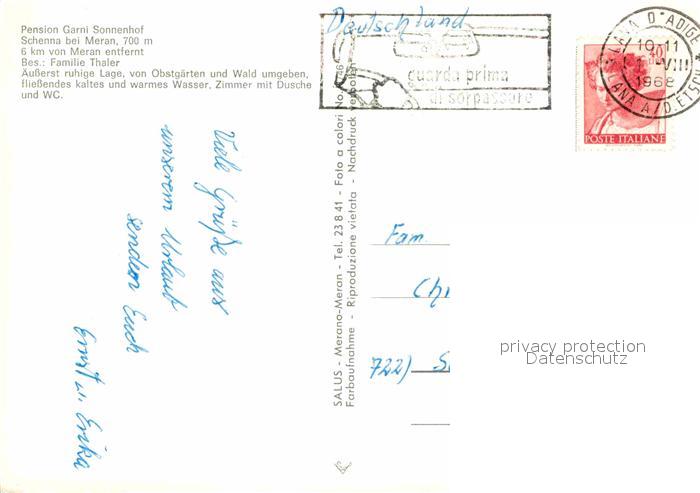 Pension Garni Sonnenhof
Schenna bei Meran, 700 m
6 km von Meran entfernt
Bes.: Familie Thaler
Äußerst ruhige Lage, von Obstgärten und Wald umgeben,
fließendes kaltes und warmes Wasser, Zimmer mit Dusche
und WC.
Viele Grüße aus
unserem Urlaub
senden Euch
Ernst u. Erika
SALUS - Merano-Meran - Tel. 23 8 41 - Foto a colori No.
Farbaufnahme - Riproduzione vietata - Nachdruck verboten
Deutschland
guarda prima
di sorpassare
LANA D'ADIGE
10-11
VIII
1968
LANA A/D.ETSCH
POSTE ITALIANE
Fam.
Chi
722) S
privacy protection
Datenschutz